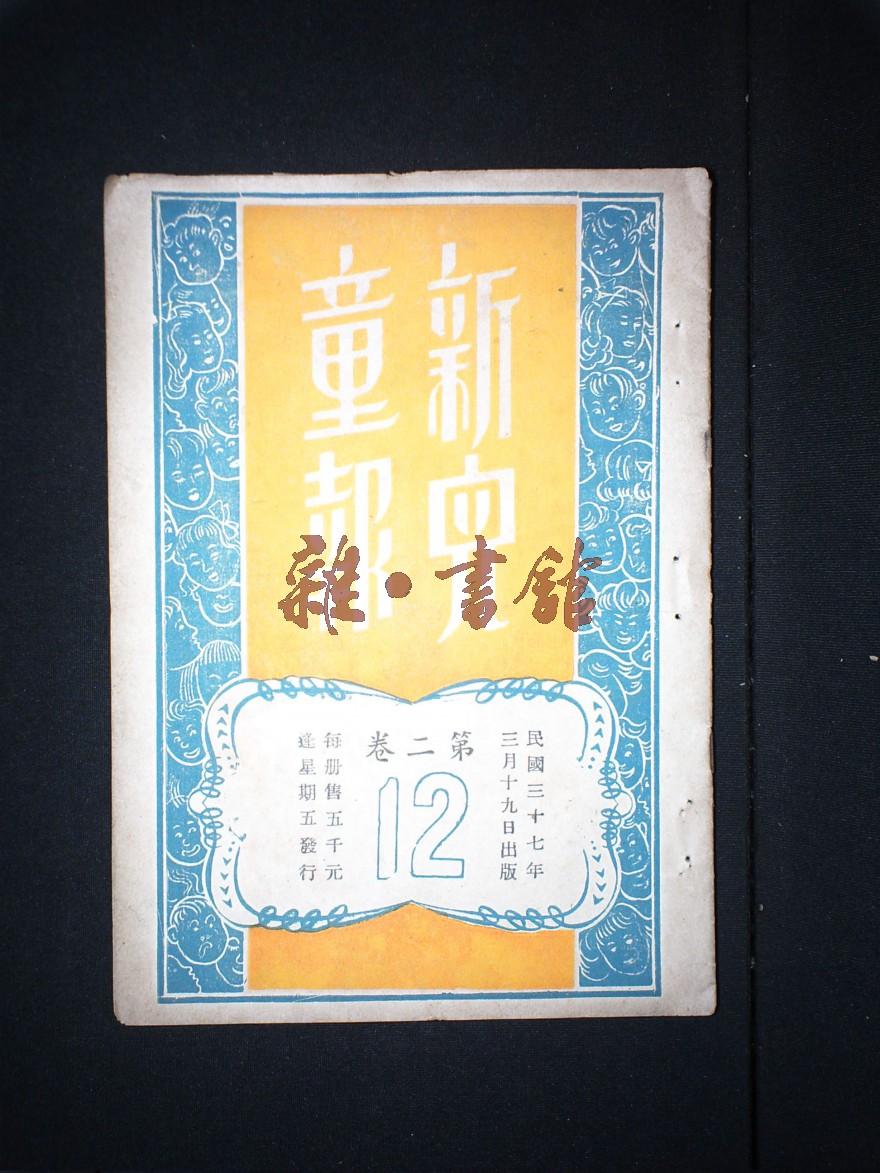 新兒
童報
雜·書館
民國三十七年
三月十九日出版
第二卷
12
每册售五千元
逢星期五發行